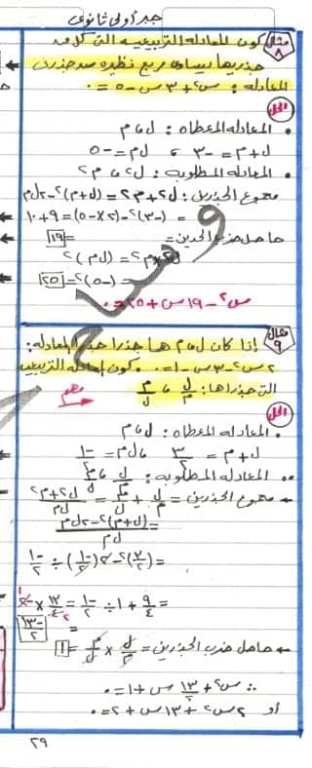 جبر أولى ثانوى
مثال ٨ كون المعادلة التربيعية التى كل من
جذريها يساوى مربع نظيره من جذرى
المعادلة : س٢ + ٣ س - ٥ = ٠
الحل
• المعادلة المعطاة : ل ، م
ل + م = -٣ ، ل م = -٥
• المعادلة المطلوبة : ل٢ ، م٢
مجموع الجذرين : ل٢ + م٢ = (ل + م)٢ - ٢ ل م
= (-٣)٢ - (٢ × -٥) = ٩ + ١٠
= ١٩
حاصل ضرب الجذرين =
ل٢ × م٢ = (ل م)٢
= (-٥)٢ = ٢٥
س٢ - ١٩ س + ٢٥ = ٠
مثال ٩ إذا كان ل ، م هما جذرا المعادلة :
٢ س٢ - ٣ س - ١ = ٠ كون المعادلة التربيعية
التى جذراها : ل/م ، م/ل
مهم
الحل
• المعادلة المعطاة : ل ، م
ل + م = ٣/٢ ، ل م = -١/٢
•• المعادلة المطلوبة : ل/م ، م/ل
مجموع الجذرين = ل/م + م/ل = ل٢ + م٢/ل م
= (ل + م)٢ - ٢ ل م/ل م
= (٣/٢)٢ - ٢ (-١/٢) ÷ -١/٢
= ٩/٤ + ١ ÷ -١/٢ = ١٣/٤ × -٢
= -١٣/٢
حاصل ضرب الجذرين = ل/م × م/ل = ١
∴ س٢ + ١٣/٢ س + ١ = ٠
أو ٢ س٢ + ١٣ س + ٢ = ٠
٢٩